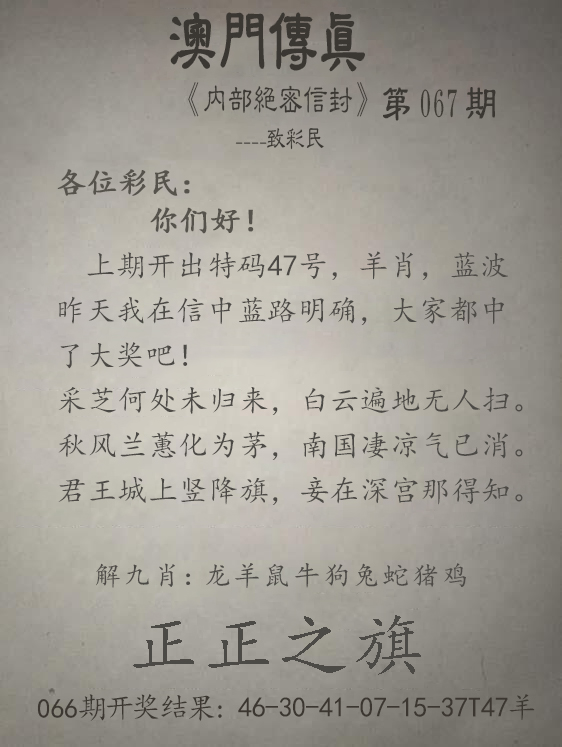 澳門傳眞
《内部絕密信封》第067期
----致彩民
各位彩民：
你们好！
上期开出特码47号，羊肖，蓝波
昨天我在信中蓝路明确，大家都中
了大奖吧！
采芝何处未归来，白云遍地无人扫。
秋风兰蕙化为茅，南国凄凉气已消。
君王城上竖降旗，妾在深宫那得知。
解九肖：龙羊鼠牛狗兔蛇猪鸡
正正之旗
066期开奖结果：46-30-41-07-15-37T47羊